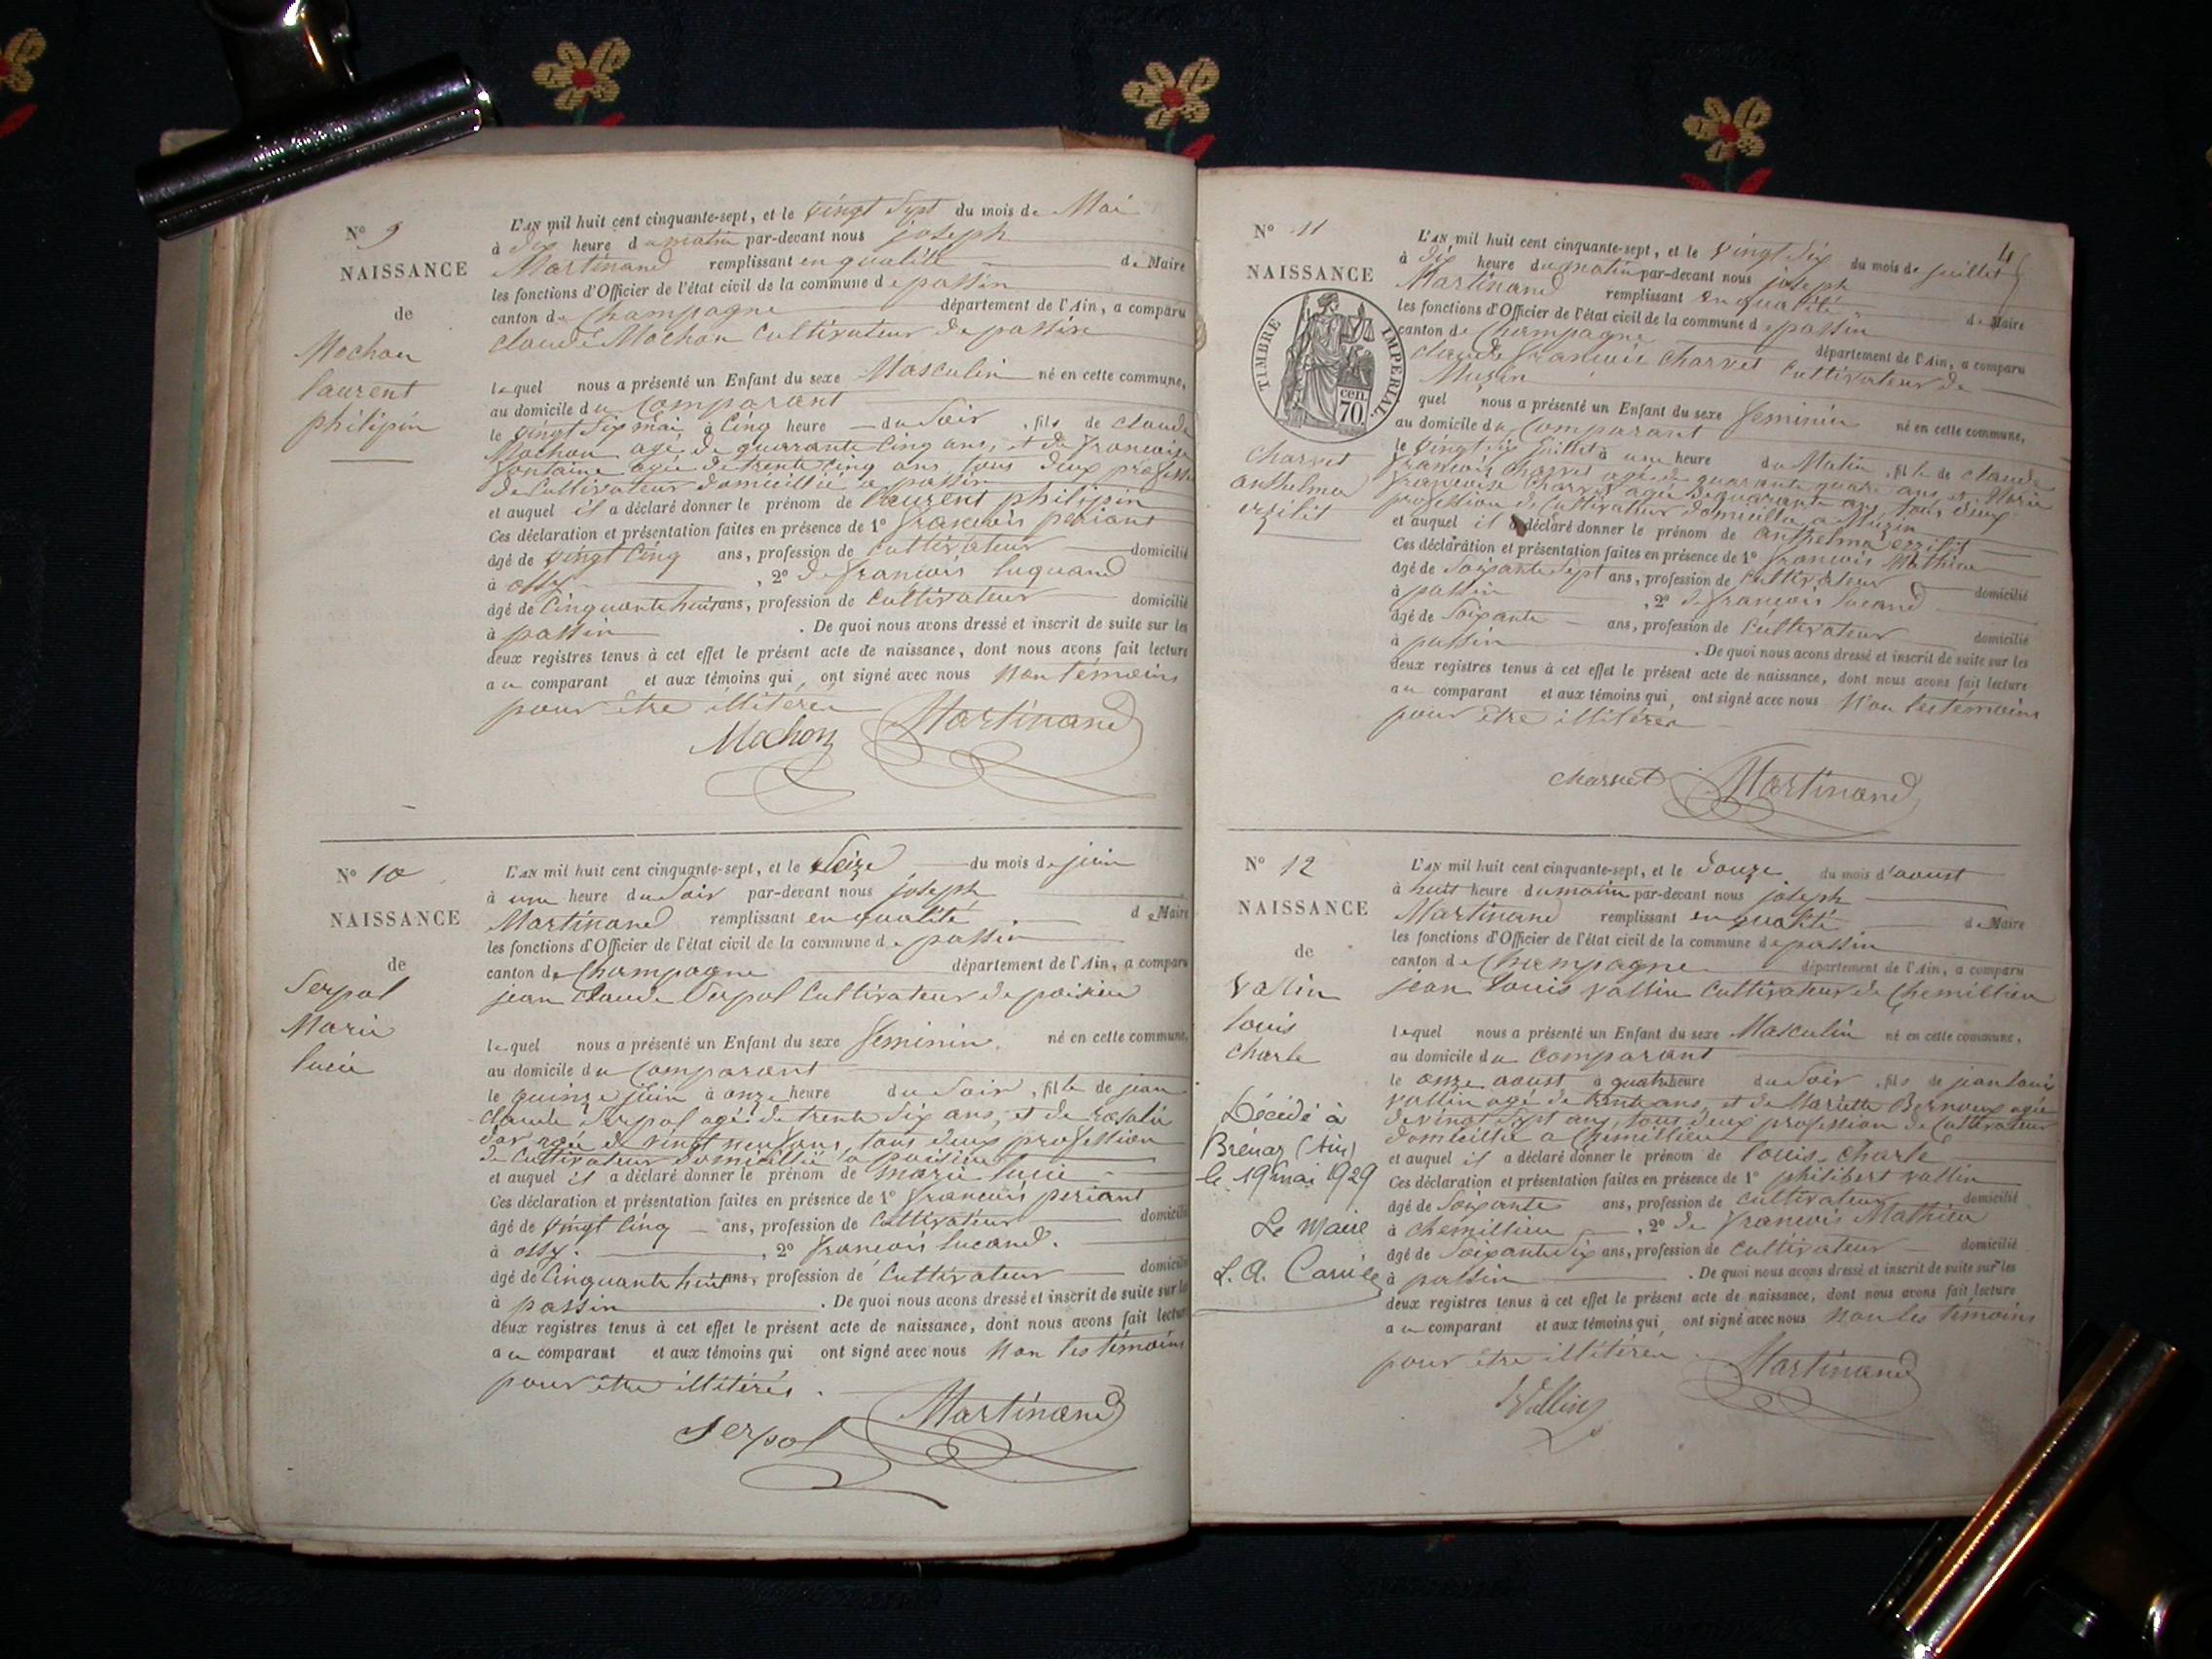 N° 9
NAISSANCE
de
Mochon
laurent
philipin
L'AN mil huit cent cinquante-sept, et le vingt sept du mois de Mai
à dix heure du matin par-devant nous joseph
Martinand remplissant en qualité de Maire
les fonctions d'Officier de l'état civil de la commune de passin
canton de Champagne département de l'Ain, a comparu
claude Mochon Cultivateur de passin
lequel nous a présenté un Enfant du sexe Masculin né en cette commune,
au domicile du Comparant
le vingt six mai à Cinq heure du Soir, fils de claude
Mochon agé de quarante Cinq ans, et de francoise
fontaine agée de trente Cinq ans tous deux profession
de Cultivateur domicillié a passin
et auquel il a déclaré donner le prénom de laurent philipin
Ces déclaration et présentation faites en présence de 1° francois periant
âgé de vingt Cinq ans, profession de Cultivateur domicilié
à ossy , 2° de francois luquand
âgé de Cinquante huit ans, profession de Cultivateur domicilié
à passin . De quoi nous avons dressé et inscrit de suite sur les
deux registres tenus à cet effet le présent acte de naissance, dont nous avons fait lecture
au comparant et aux témoins qui, ont signé avec nous Non témoins
pour être illitéré
Mochon Martinand
N° 10
NAISSANCE
de
Serpol
Marie
lucie
L'AN mil huit cent cinquante-sept, et le Seize du mois de juin
à une heure du Soir par-devant nous joseph
Martinand remplissant en qualité de Maire
les fonctions d'Officier de l'état civil de la commune de passin
canton de Champagne département de l'Ain, a comparu
jean claude Serpol Cultivateur de poisieu
lequel nous a présenté un Enfant du sexe feminin. né en cette commune,
au domicile du Comparant
le quinze juin à onze heure du Soir, fille de jean
claude Serpol agé de trente Six ans, et de rosalie
agée de vingt neuf ans, tous deux profession
de Cultivateur domicillié a poisieu
et auquel il a déclaré donner le prénom de marie lucie
Ces déclaration et présentation faites en présence de 1° francois periant
âgé de vingt Cinq ans, profession de Cultivateur domicilié
à ossy. , 2° francois lucand.
âgé de Cinquante huit ans, profession de Cultivateur domicilié
à passin . De quoi nous avons dressé et inscrit de suite sur les
deux registres tenus à cet effet le présent acte de naissance, dont nous avons fait lecture
au comparant et aux témoins qui ont signé avec nous Non les témoins
pour être illitérés.
Serpol Martinand
4
N° 11
NAISSANCE
TIMBRE IMPERIAL.
70 cen.
Charvet
anthelma
erzilit
L'AN mil huit cent cinquante-sept, et le vingt Six du mois de juillet
à dix heure du matin par-devant nous joseph
Martinand remplissant en qualité de Maire
les fonctions d'Officier de l'état civil de la commune de passin
canton de Champagne département de l'Ain, a comparu
claude francois Charvet Cultivateur de
Muzin
quel nous a présenté un Enfant du sexe feminin né en cette commune,
au domicile du Comparant
le vingt six juillet à une heure du Matin, fille de claude
francois Charvet agé de quarante quatre ans et Marie
francoise Charvet agée de quarante ans, tous deux
profession de Cultivateur domicillié a Muzin
et auquel il a déclaré donner le prénom de anthelma erzilit
Ces déclaration et présentation faites en présence de 1° francois Mathieu
âgé de Soixante Sept ans, profession de Cultivateur domicilié
à passin , 2° de francois lucand
âgé de Soixante ans, profession de Cultivateur domicilié
à passin . De quoi nous avons dressé et inscrit de suite sur les
deux registres tenus à cet effet le présent acte de naissance, dont nous avons fait lecture
au comparant et aux témoins qui, ont signé avec nous Non les témoins
pour être illitéré
Charvet Martinand
N° 12
NAISSANCE
de
Vallin
louis
charle
Décédé à
Brénaz (Ain)
le 19 mai 1929
Le Maire
L'AN mil huit cent cinquante-sept, et le douze du mois d'aoust
à huit heure du matin par-devant nous joseph
Martinand remplissant en qualité de Maire
les fonctions d'Officier de l'état civil de la commune de passin
canton de Champagne département de l'Ain, a comparu
jean louis vallin Cultivateur de Chemillieu
lequel nous a présenté un Enfant du sexe Masculin né en cette commune,
au domicile du Comparant
le onze aoust à quatre heure du Soir, fils de jean louis
vallin agé de trente ans, et de Mariette Bernoux agée
de vingt Sept ans, tous deux profession de Cultivateur
domicillié a Chemillieu
et auquel il a déclaré donner le prénom de louis-charle
Ces déclaration et présentation faites en présence de 1° philibert vallin
âgé de Soixante ans, profession de Cultivateur domicilié
à chemillieu , 2° de francois Mathieu
âgé de Soixante Six ans, profession de Cultivateur domicilié
à passin . De quoi nous avons dressé et inscrit de suite sur les
deux registres tenus à cet effet le présent acte de naissance, dont nous avons fait lecture
au comparant et aux témoins qui, ont signé avec nous Non les témoins
pour être illitéré
Vallin Martinand